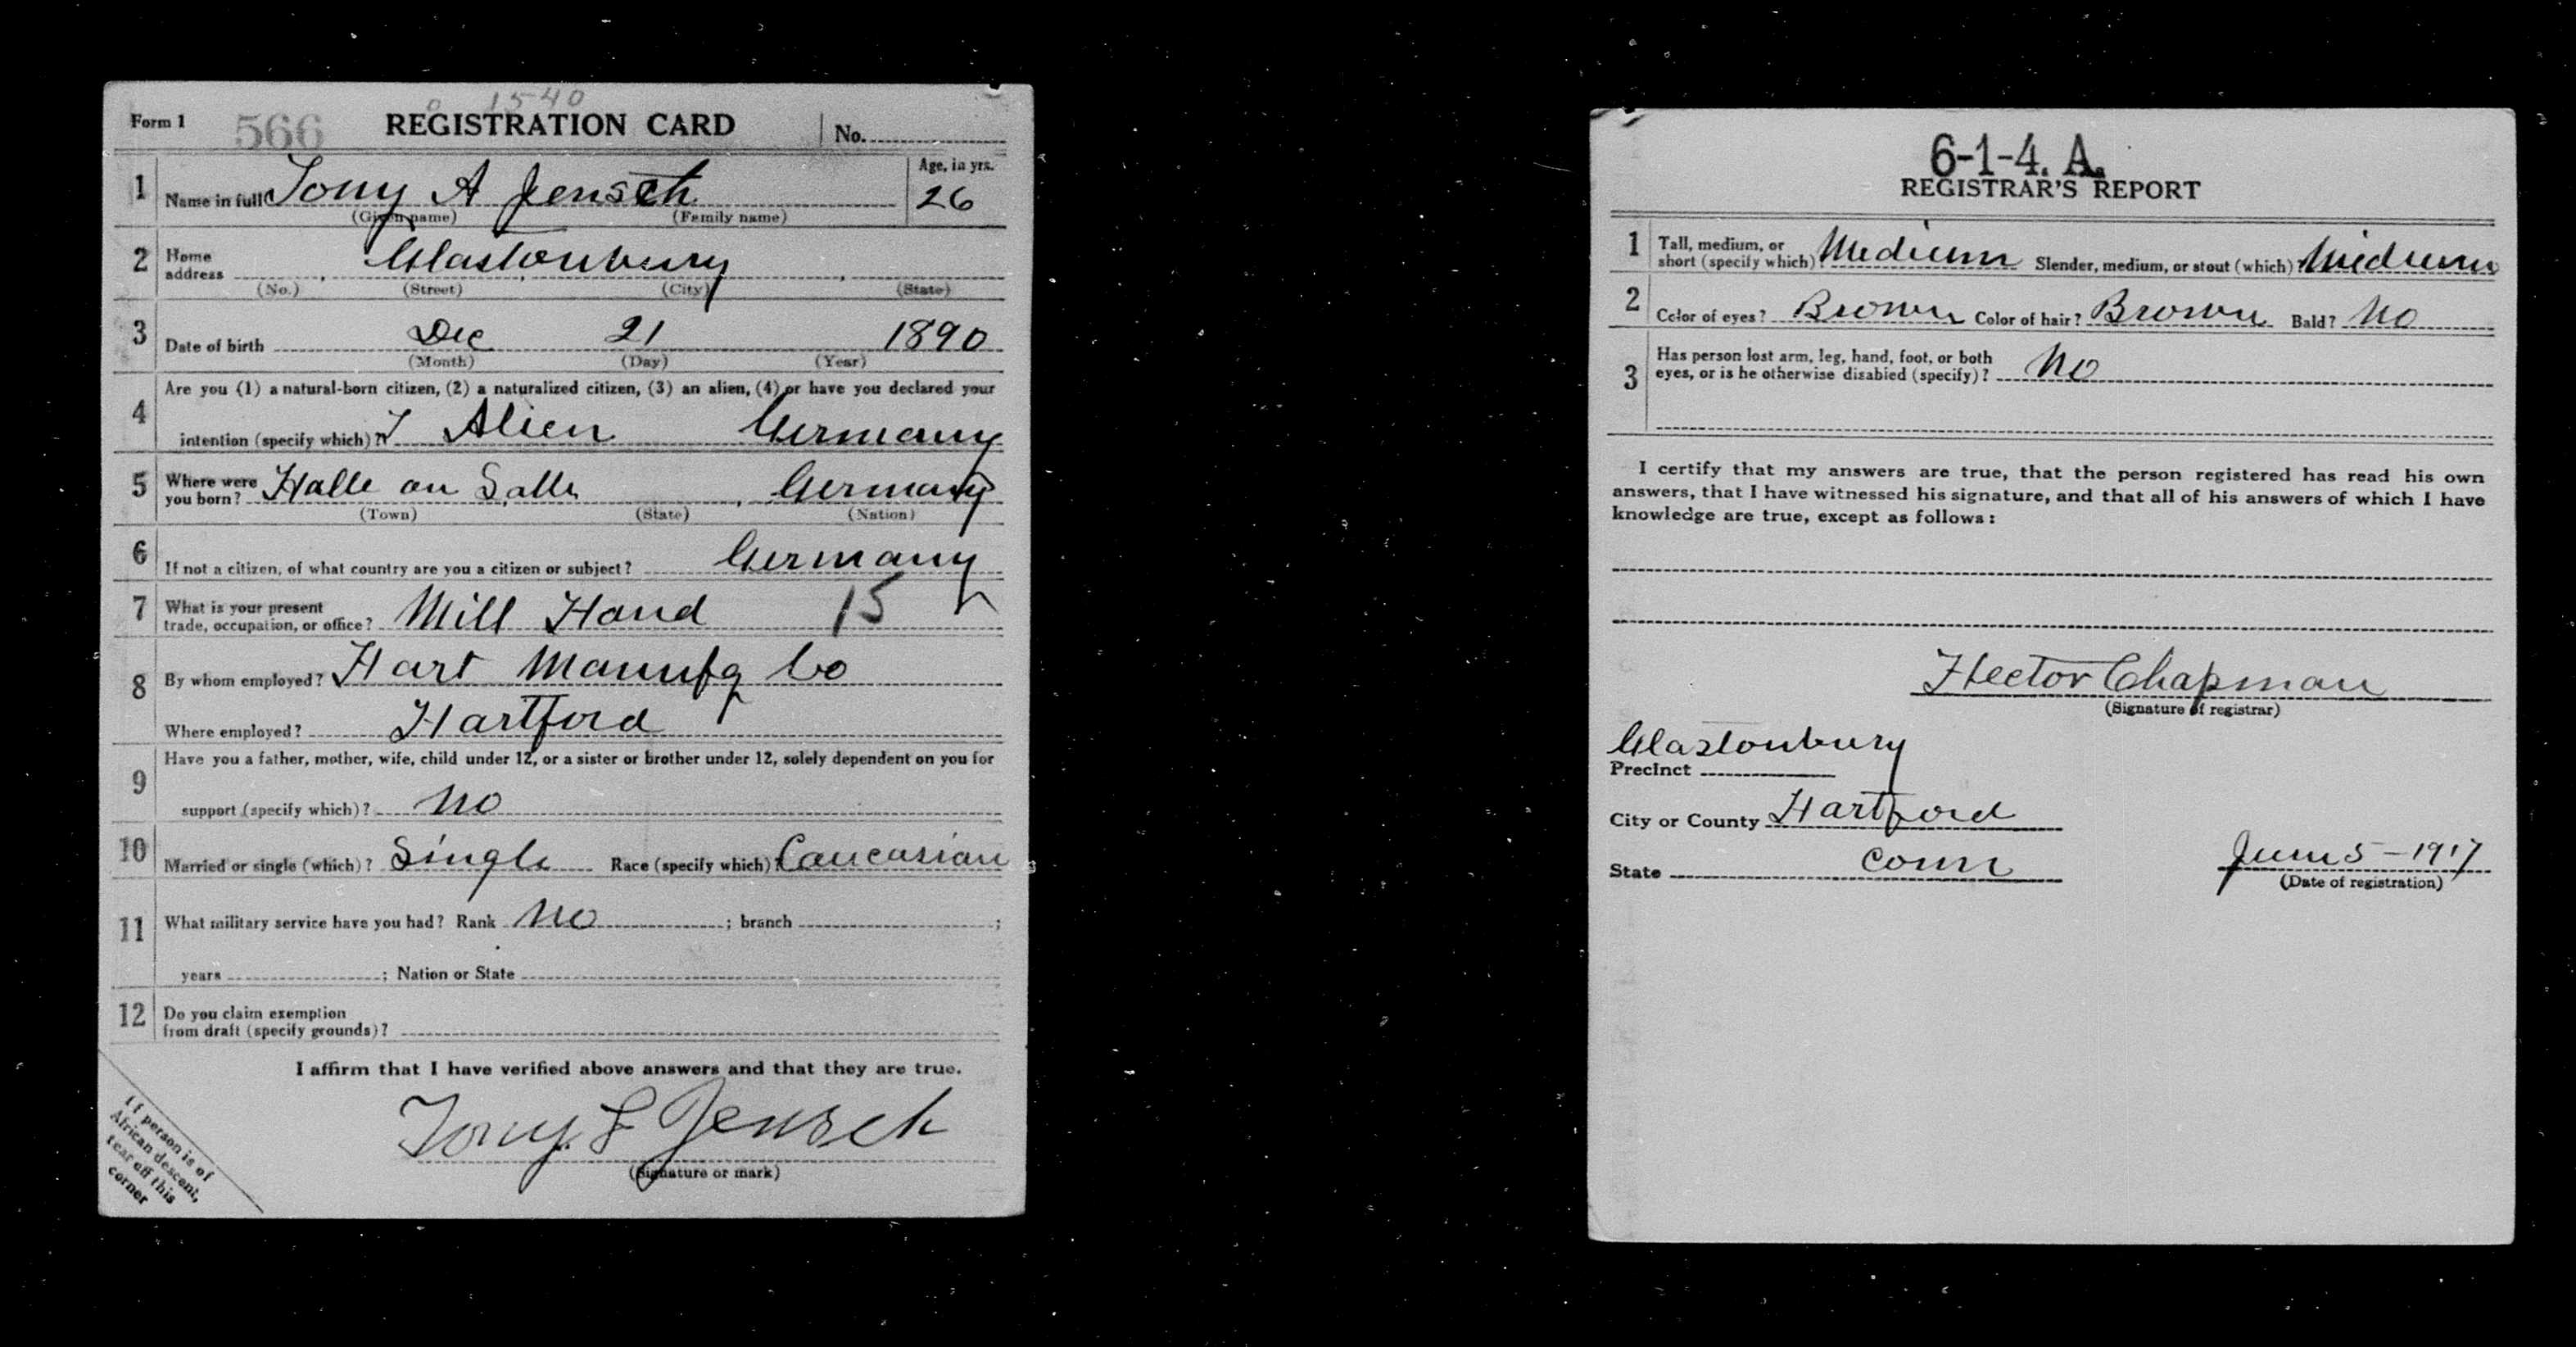 1540
Form 1 566 REGISTRATION CARD No.
1 Name in full Tony A Jensch Age, in yrs. 26
(Given name) (Family name)
2 Home address Glastonbury
(No.) (Street) (City) (State)
3 Date of birth Dec 21 1890
(Month) (Day) (Year)
4 Are you (1) a natural-born citizen, (2) a naturalized citizen, (3) an alien, (4) or have you declared your
intention (specify which)? Alien Germany
5 Where were you born? Halle an Salle, Germany
(Town) (State) (Nation)
6 If not a citizen, of what country are you a citizen or subject? Germany
7 What is your present trade, occupation, or office? Mill Hand 15
8 By whom employed? Hart Manufg Co
Where employed? Hartford
9 Have you a father, mother, wife, child under 12, or a sister or brother under 12, solely dependent on you for
support (specify which)? No
10 Married or single (which)? Single Race (specify which)? Caucasian
11 What military service have you had? Rank No ; branch ;
years ; Nation or State
12 Do you claim exemption from draft (specify grounds)?
I affirm that I have verified above answers and that they are true.
Tony Jensch
(Signature or mark)
If person is of
African descent,
tear off this
corner
6-1-4. A.
REGISTRAR'S REPORT
1 Tall, medium, or short (specify which)? Medium Slender, medium, or stout (which)? Medium
2 Color of eyes? Brown Color of hair? Brown Bald? No
3 Has person lost arm, leg, hand, foot, or both
eyes, or is he otherwise disabled (specify)? No
I certify that my answers are true, that the person registered has read his own
answers, that I have witnessed his signature, and that all of his answers of which I have
knowledge are true, except as follows:
Hector Chapman
(Signature of registrar)
Glastonbury
Precinct
City or County Hartford
State Conn June 5-1917
(Date of registration)